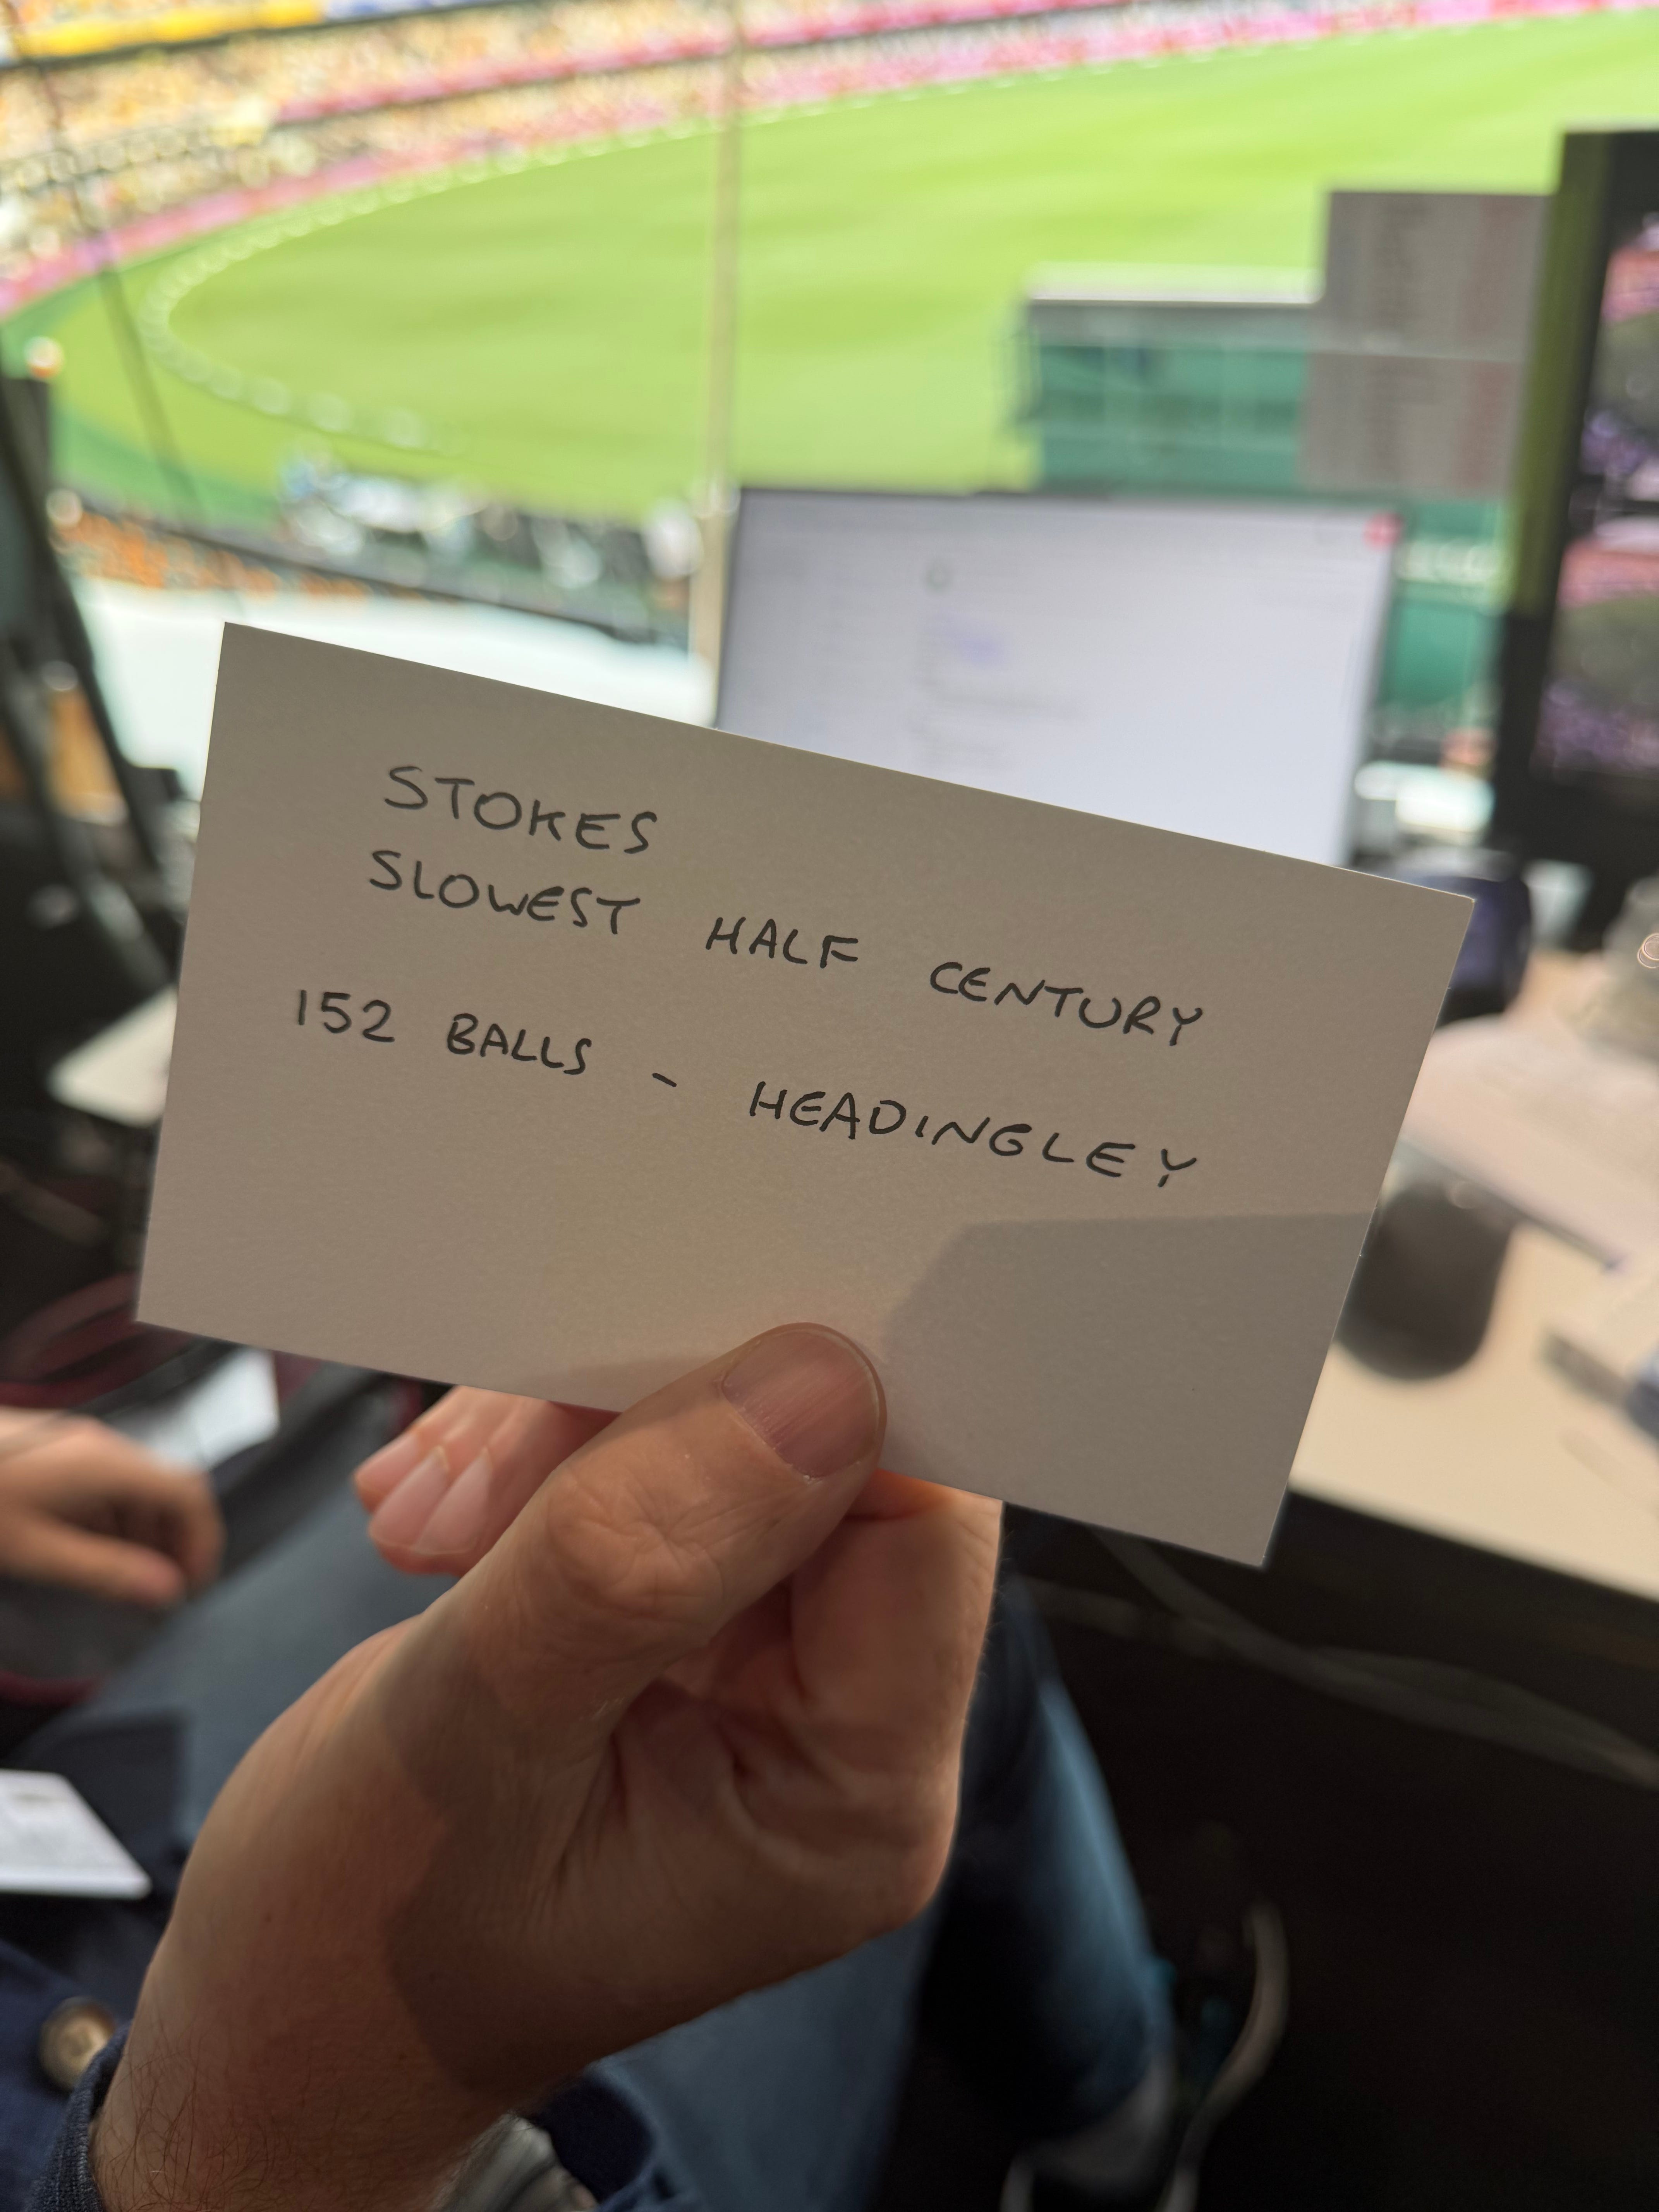 STOKES
SLOWEST HALF CENTURY
152 BALLS - HEADINGLEY